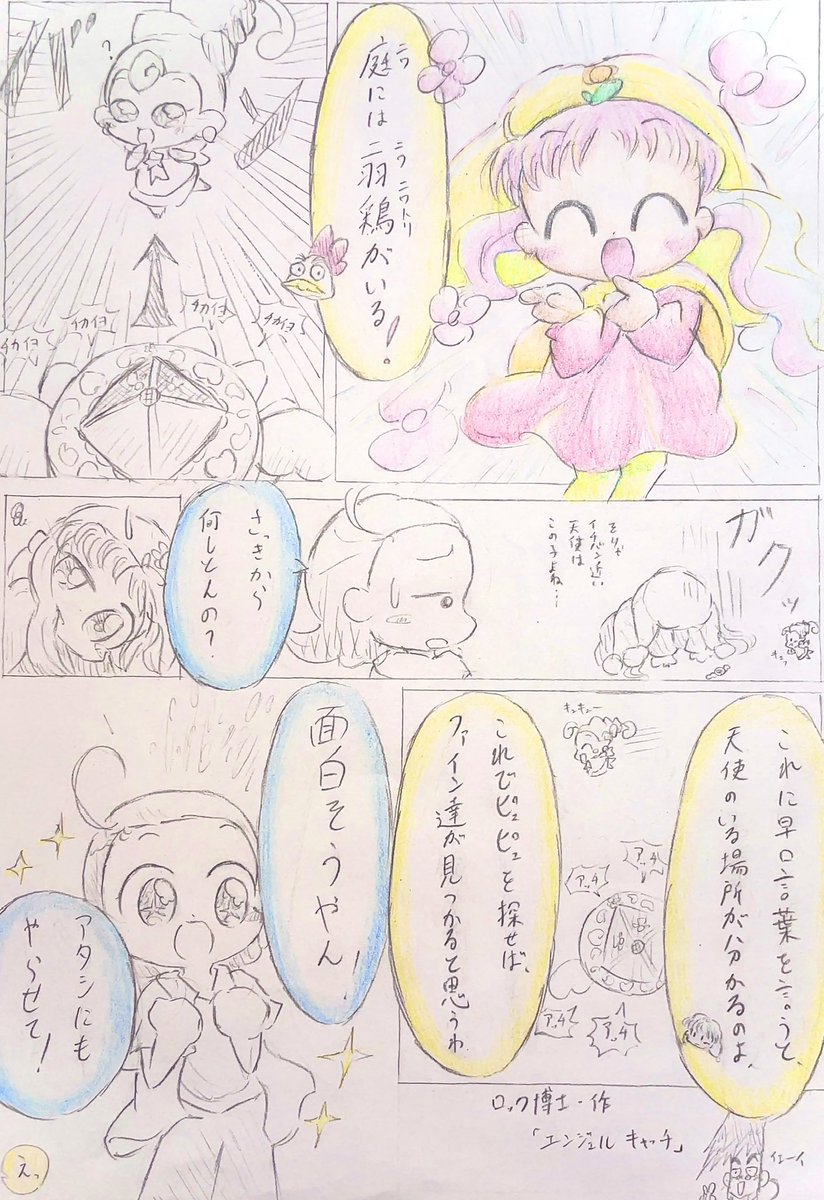 庭には二羽鶏がいる!
ニワ
ニワ ニワトリ
?
チカイヨ
チカイヨ
チカイヨ
チカイヨ
ガクッ
そりゃ
イチバン近い
天使は
この子よね…
さっきから
何しとんの?
これに早口言葉を言うと、
天使のいる場所が分かるのよ。
キュキュー
アッチ
アッチ
アッチ
アッチ
これでピュピュを探せば、
ファイン達が見つかると思うわ。
ロック博士・作
「エンジェルキャッチ」
イェーイ
面白そうやん!
アタシにも
やらせて!
えっ